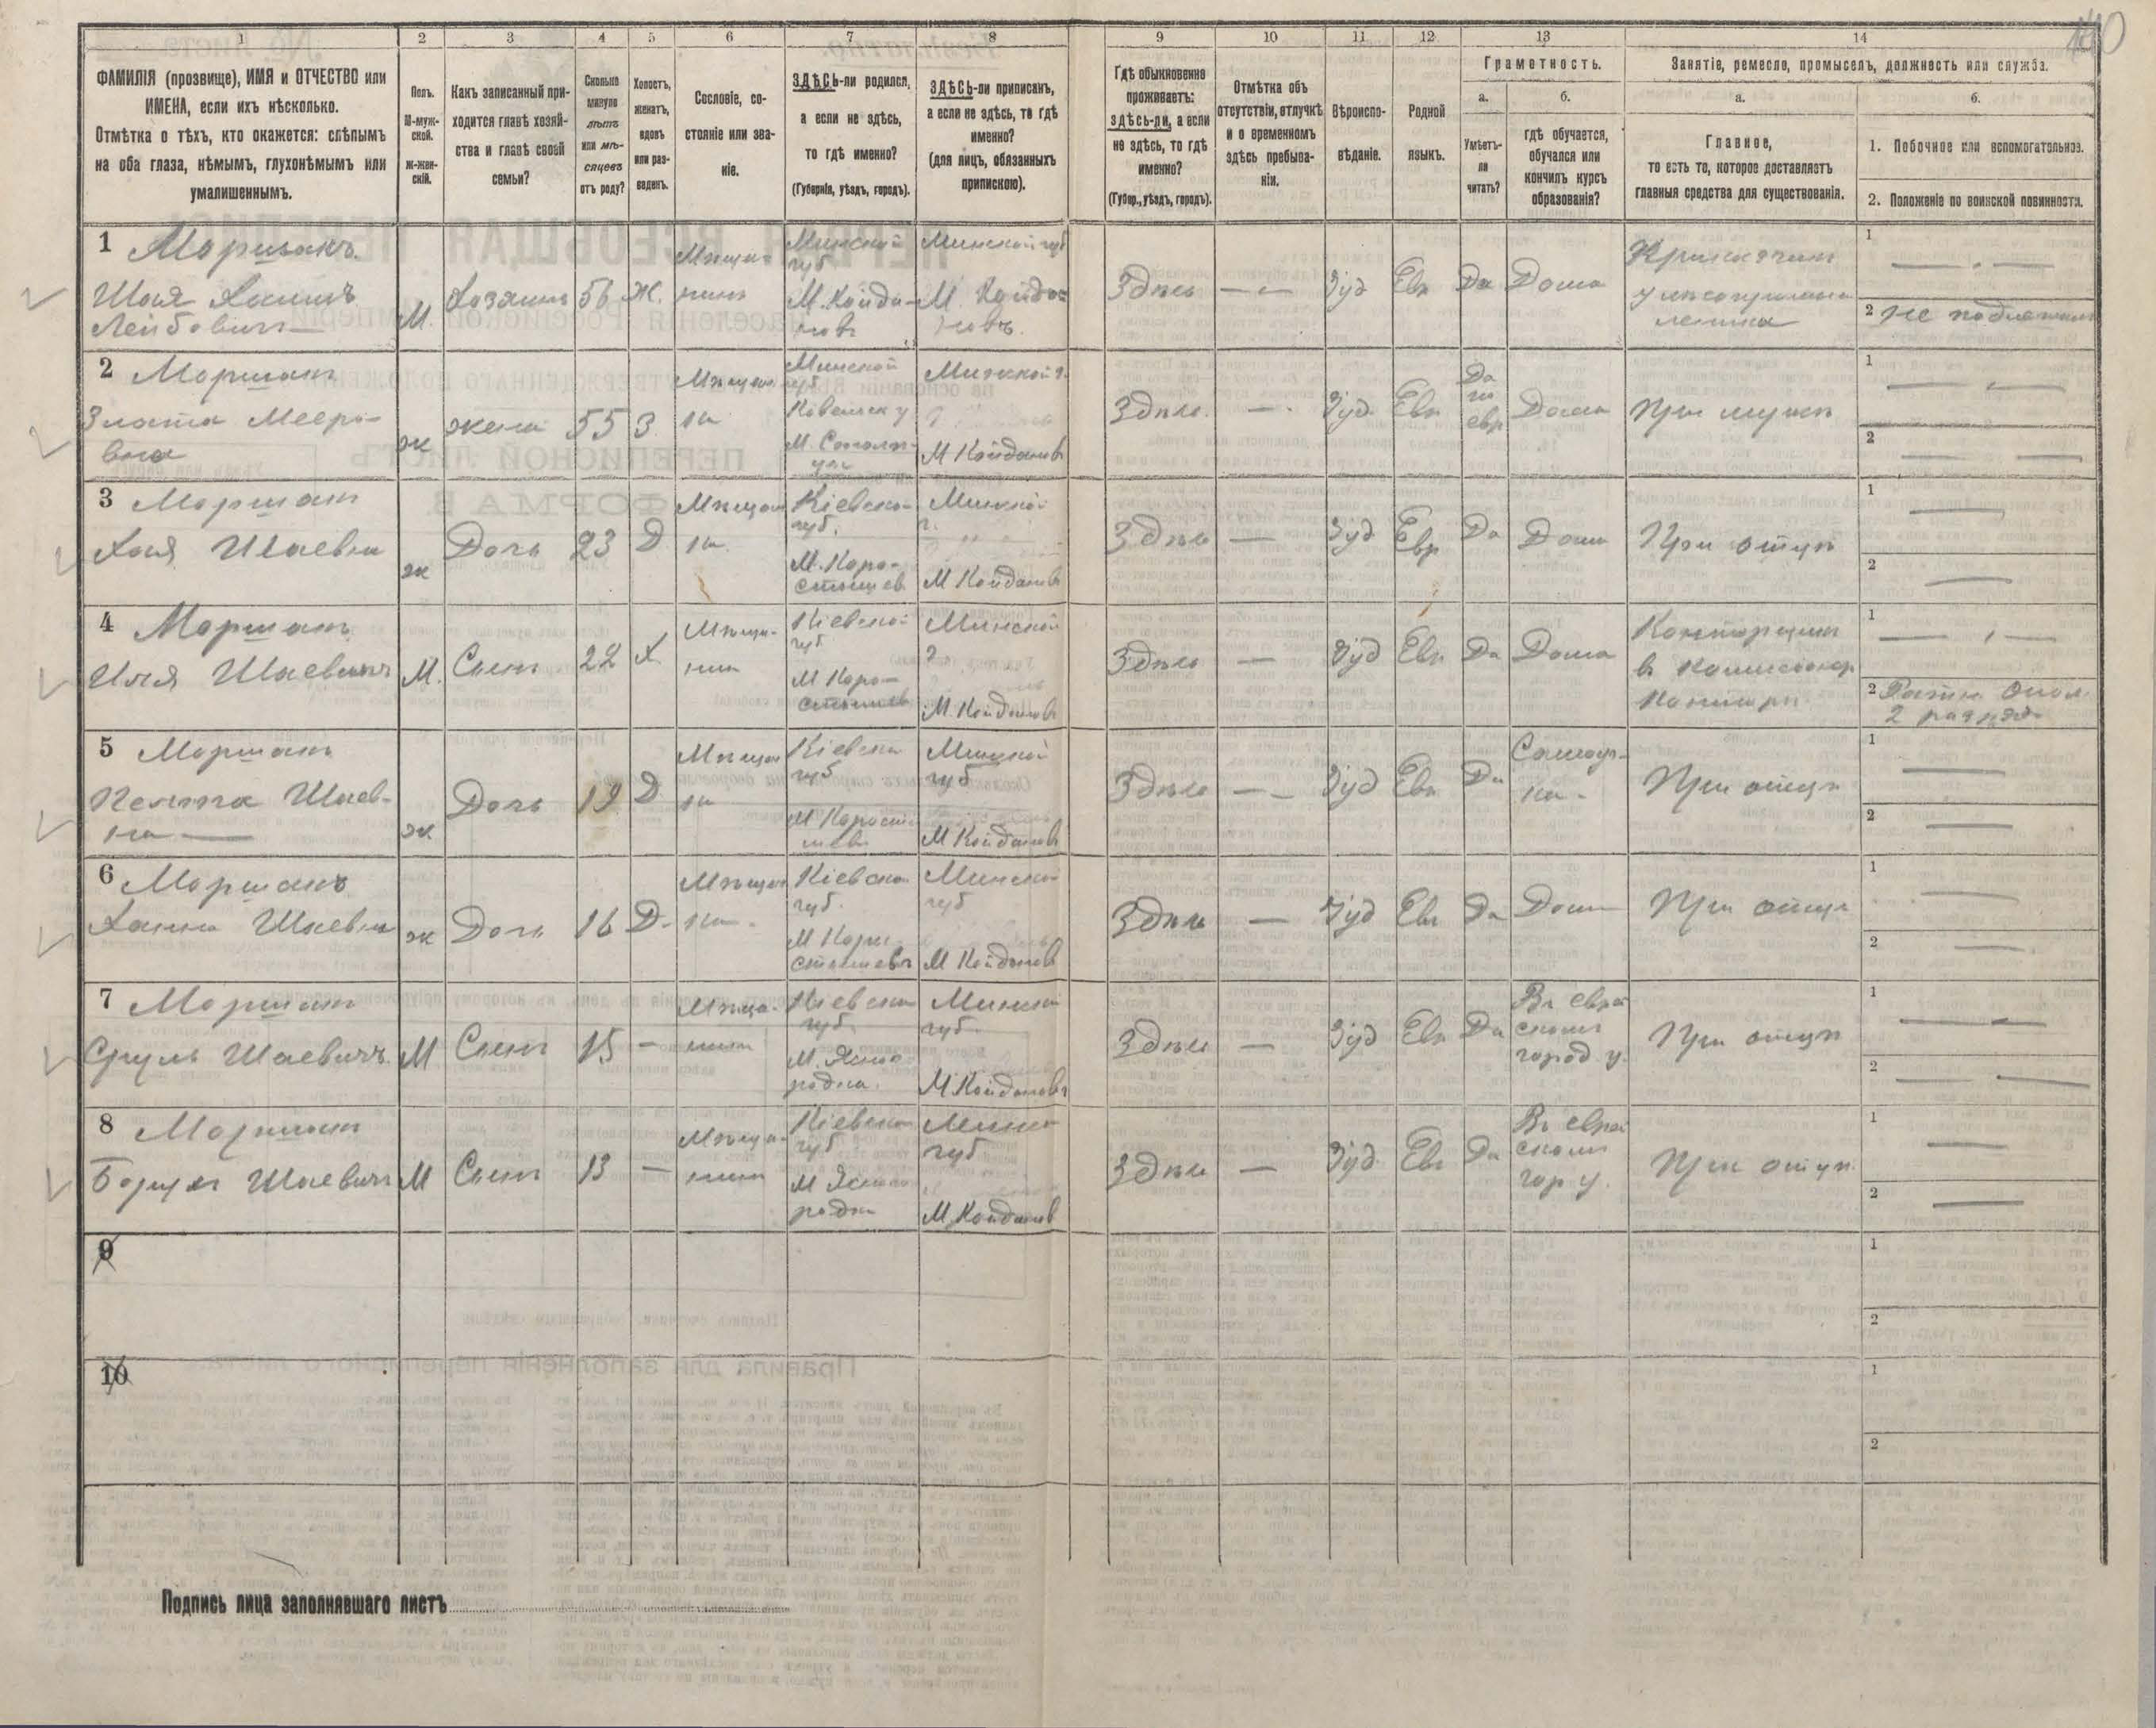 140
1 2 3 4 5 6 7 8 9 10 11 12 13 14
ФАМИЛІЯ (прозвище), ИМЯ и ОТЧЕСТВО или
ИМЕНА, если ихъ нѣсколько.
Отмѣтка о тѣхъ, кто окажется: слѣпымъ
на оба глаза, нѣмымъ, глухонѣмымъ или
умалишеннымъ.
Полъ.
М-муж-
ской.
Ж-жен-
скій.
Какъ записанный при-
ходится главѣ хозяй-
ства и главѣ своей
семьи?
Сколько
минуло
лѣтъ
или мѣ-
сяцевъ
отъ роду?
Холостъ,
женатъ,
вдовъ
или раз-
веденъ.
Сословіе, со-
стояніе или зва-
ніе.
ЗДѢСЬ-ли родился,
а если не здѣсь,
то гдѣ именно?
(Губернія, уѣздъ, городъ).
ЗДѢСЬ-ли приписанъ,
а если не здѣсь, то гдѣ
именно?
(для лицъ, обязанныхъ
припискою).
Гдѣ обыкновенно
проживаетъ:
здѣсь-ли, а если
не здѣсь, то гдѣ
именно?
(Губер., уѣздъ, городъ).
Отмѣтка объ
отсутствіи, отлучкѣ
и о временномъ
здѣсь пребыва-
ніи.
Вѣроиспо-
вѣданіе.
Родной
языкъ.
Грамотность.
а.
Умѣетъ-
ли
читать?
б.
гдѣ обучается,
обучался или
кончилъ курсъ
образованія?
Занятіе, ремесло, промыселъ, должность или служба.
а.
Главное,
то есть то, которое доставляетъ
главныя средства для существованія.
б.
1. Побочное или вспомогательное.
2. Положеніе по воинской повинности.
1 Маршакъ
Шая Хаимъ
Лейбовичъ
М.
Хозяинъ
56
Ж.
Мѣща-
нинъ
Минской
губ
М. Койда-
новъ
Минской губ
М. Койда-
новъ.
Здѣсь
— —
Іуд
Евр
Да
Дома
1 — . —
2 Не подлежитъ
2 Маршакъ
Злата Мееро-
вна
ж
жена
55
З
Мѣщан
ка
Минской
губ
М Койдановъ
Здѣсь
—
Іуд
Евр
Да
по
евр
Дома
При мужѣ
1 — —
2 — —
3 Маршакъ
Хая Шаевна
ж
Дочь
23
Д
Мѣщан
ка
Кіевской
губ.
М. Коро-
стышев
Минской
г.
М Койдановъ
Здѣсь
—
Іуд
Евр
Да
Дома
При отцѣ
1 —
2 —
4 Маршакъ
Илія Шаевичъ
М.
Сынъ
22
Х
Мѣща-
нинъ
Кіевской
губ
М Коро-
стышевъ
Минской
М. Койдановъ
Здѣсь
—
Іуд
Евр
Да
Дома
Конторщикъ
в Комисіонер
Конторѣ.
1 — —
2 Ратн. Опол.
2 разряда
5 Маршакъ
Шаев-
на —
ж
Дочь
19
Д
Мѣщан
ка
Кіевской
губ
М Корости
шевъ
Минской
губ
М Койдановъ
Здѣсь
— —
Іуд
Евр
Да
Самоуч-
ка -
При отцѣ
1 —
2 —
6 Маршакъ
Ханна Шаевна
ж
Дочь
16
Д-
Мѣщан
ка
Кіевской
губ.
М Коро
стышевъ
Минской
губ
М Койданов
Здѣсь
—
Іуд
Евр
Да
Дома
При отцѣ
1 —
2 —
7 Маршакъ
Сруль Шаевичъ
М
Сынъ
15
—
Мѣща-
нинъ
Кіевской
губ
М. Ясно-
родка.
Минской
губ.
М. Койдановъ
Здѣсь
—
Іуд
Евр
Да
Въ еврей
скомъ
город у.
При отцѣ
1 — —
2 — —
8 Маршакъ
Борухъ Шаевичъ
М
Сынъ
13
—
Мѣща-
нинъ
Кіевской
губ
М Ясно
родка
Минской
губ
М. Койданов
Здѣсь
—
Іуд.
Евр
Да
Въ еврей
скомъ
гор у.
При отцѣ.
1 —
2 —
9
1
2
10
1
2
Подпись лица заполнявшаго листъ